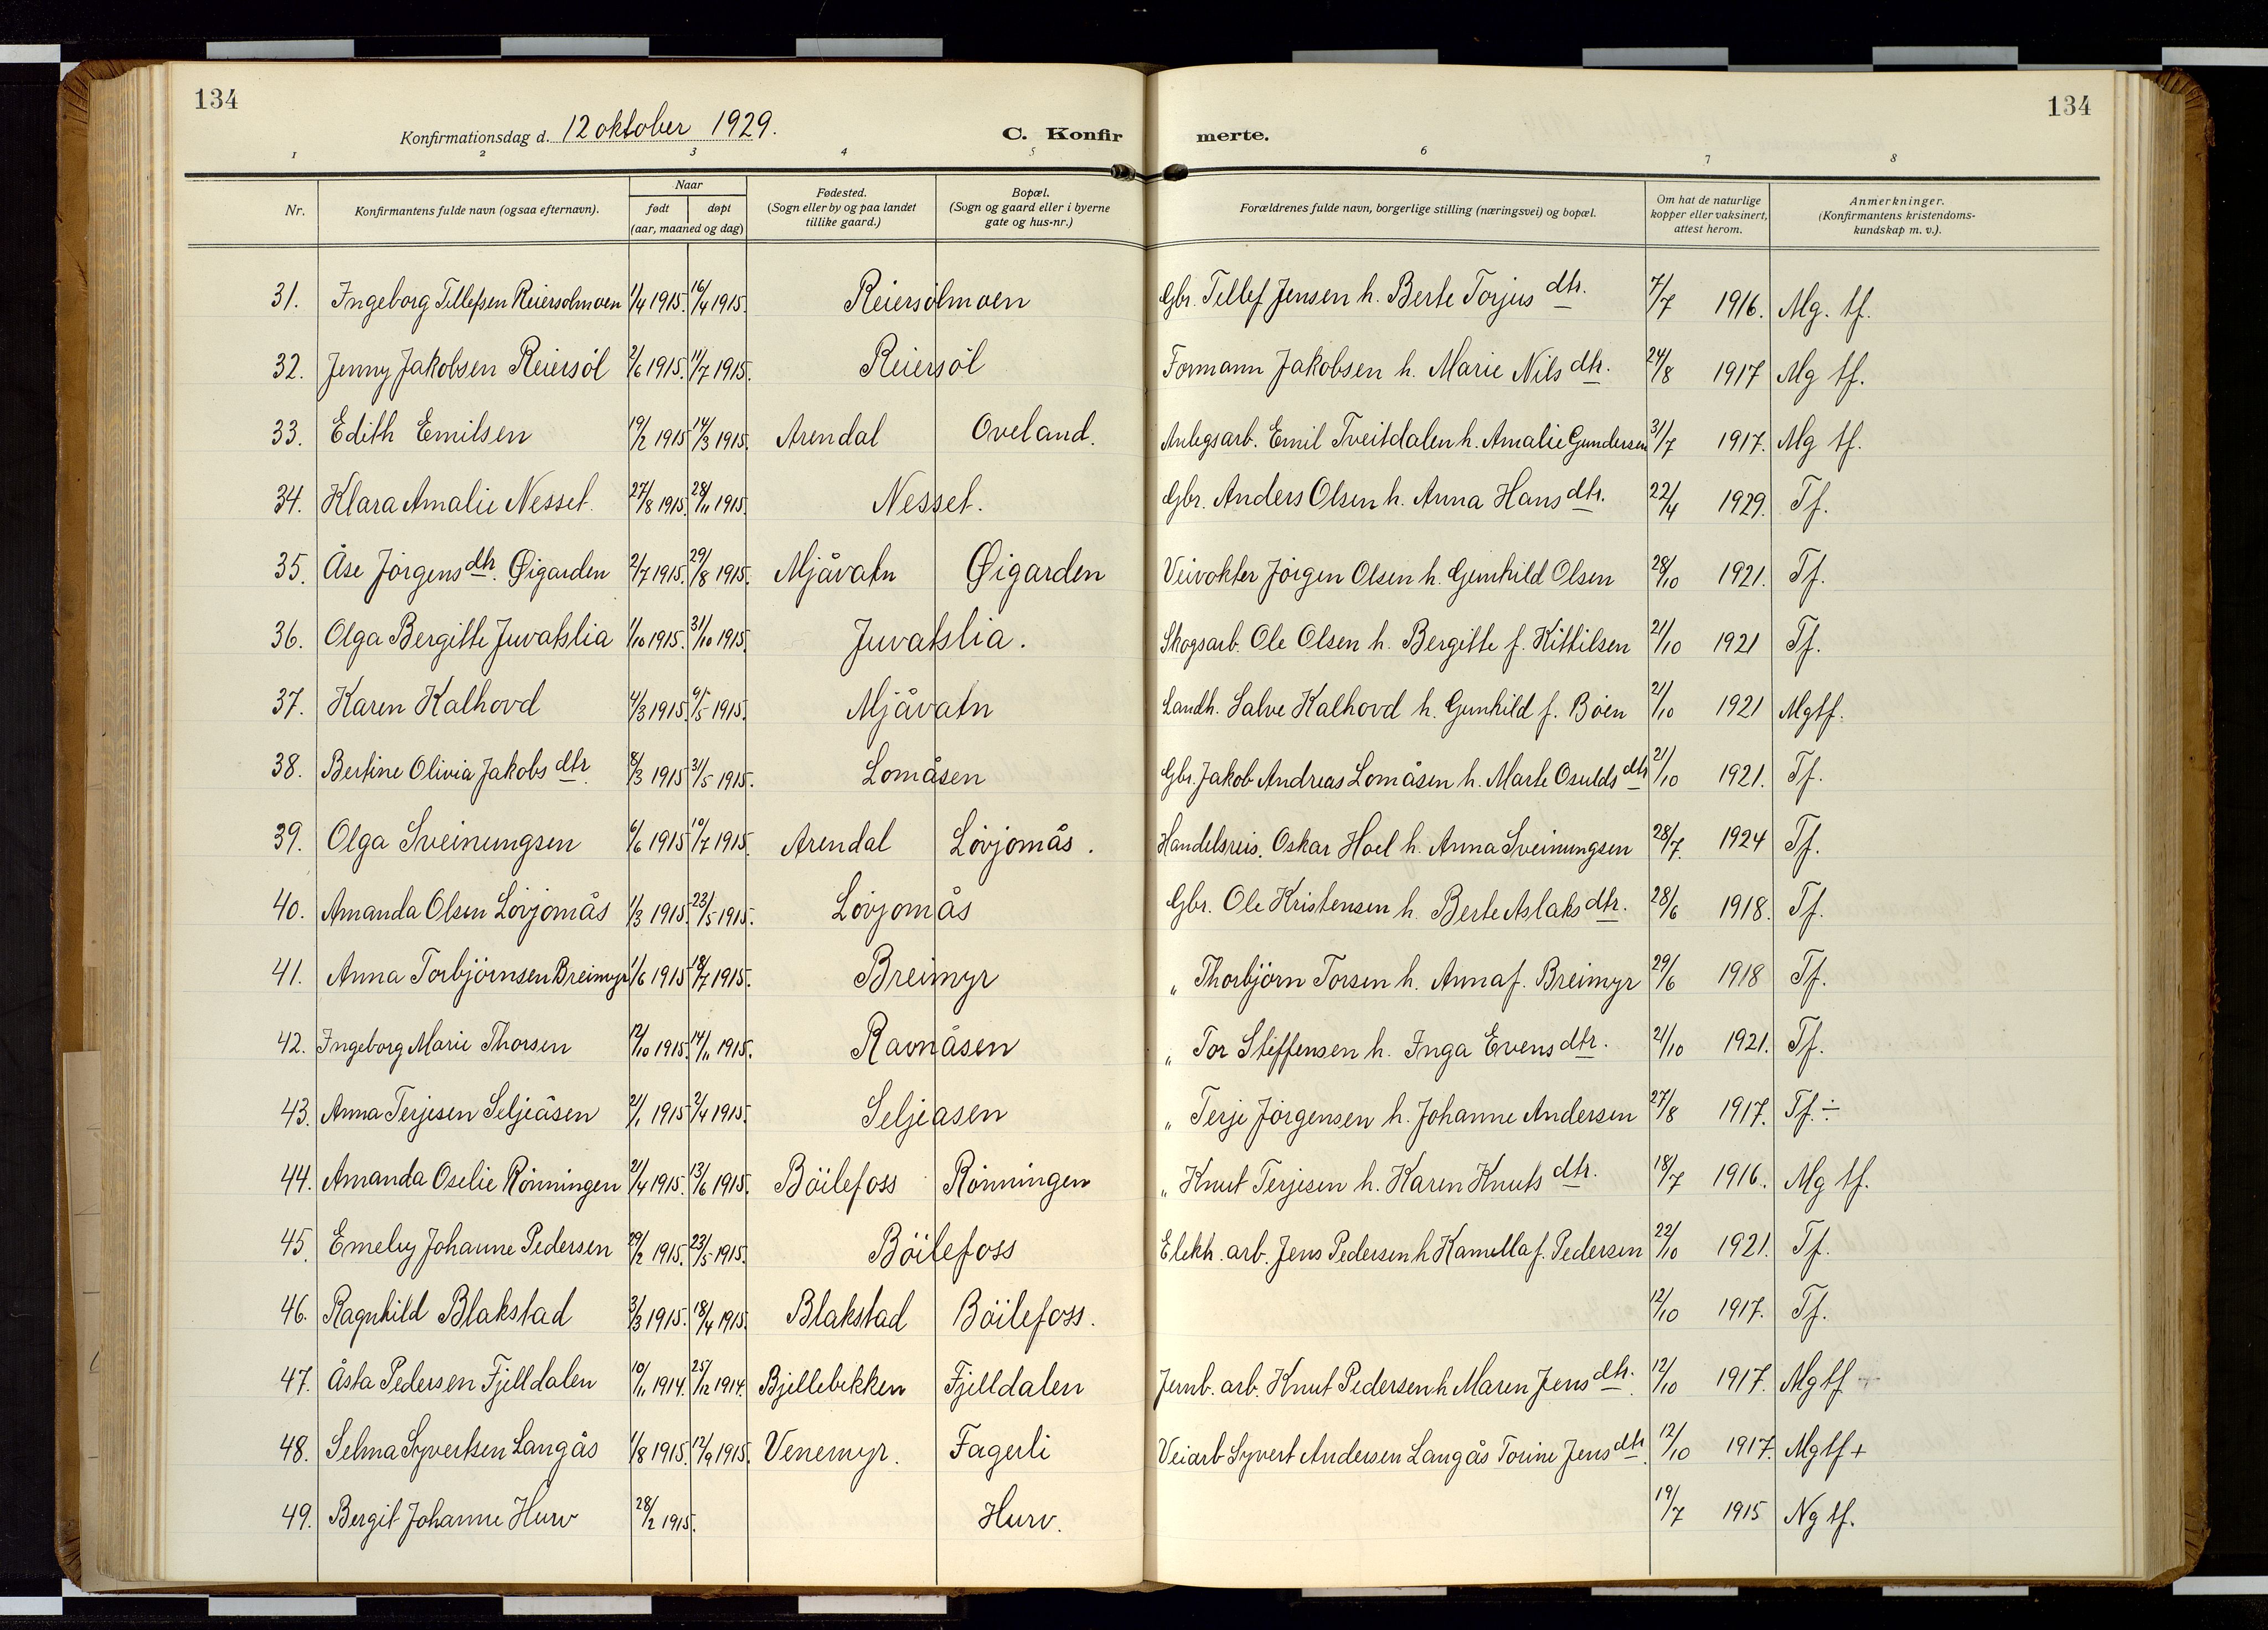 134
134
Konfirmationsdag d. 12 oktober 1929.
C. Konfirmerte.
1 2 3 4 5 6 7 8
Nr. | Konfirmantens fulde navn (ogsaa efternavn). | Naar født døpt (aar, maaned og dag) | Fødested. (Sogn eller by og paa landet tillike gaard.) | Bopæl. (Sogn og gaard eller i byerne gate og hus-nr.) | Forældrenes fulde navn, borgerlige stilling (næringsvei) og bopæl. | Om hat de naturlige kopper eller vaksinert, attest herom. | Anmerkninger. (Konfirmantens kristendoms-kundskap m. v.).
31. Ingeborg Tellefsen Reiersølmoen 1/4 1915. 16/4 1915. Reiersølmoen Gbr. Tellef Jensen h. Berte Torjus dtr. 7/7 1916. Mg. tf.
32. Jenny Jakobsen Reiersöl 2/6 1915. 11/7 1915. Reiersöl Formann Jakobsen h. Marie Nils dtr. 24/8 1917 Mg tf.
33. Edith Emilsen 19/2 1915 14/3 1915. Arendal Oveland. Anlegsarb. Emil Tveitdalen h. Amalie Gundersen 31/7 1917. Mg tf.
34. Klara Amalie Nesset. 27/8 1915. 28/11 1915. Nesset. Gbr. Anders Olsen h. Anna Hans dtr. 22/4 1929. Tf.
35. Åse Jörgens dtr. Øigarden 2/7 1915. 29/8 1915. Mjåvatn Øigarden Veivokter Jörgen Olsen h. Gunhild Olsen 28/10 1921. Tf.
36. Olga Bergitte Juvatslia 1/10 1915. 31/10 1915. Juvatslia. Skogsarb. Ole Olsen h. Bergitte f. Kittilsen 21/10 1921 Tf.
37. Karen Kalhovd 4/3 1915. 9/5 1915. Mjåvatn Landh. Salve Kalhovd h. Gunhild f. Böen 21/10 1921 Mgtf.
38. Bertine Olivia Jakobs dtr. 8/3 1915 31/5 1915. Lomåsen Gbr. Jakob Andreas Lomåsen h. Marte Osulds dtr 21/10 1921. Tf.
39. Olga Sveinungsen 6/6 1915 10/7 1915. Arendal Lövjomås. Handelsreis. Oskar Hoel h. Anna Sveinungsen 28/7. 1924 Tf.
40. Amanda Olsen Lövjomås 1/3 1915. 23/5 1915. Lövjomås Gbr. Ole Kristensen h. Berte Aslaks dtr. 28/6 1918. Tf.
41. Anna Torbjörnsen Breimyr 1/6 1915 18/7 1915. Breimyr " Thorbjörn Torsen h. Anna f. Breimyr 29/6 1918 Tf.
42. Ingeborg Marie Thorsen 12/10 1915. 14/11 1915. Ravnåsen " Tor Steffensen h. Inga Evens dtr. 21/10 1921. Tf.
43. Anna Terjesen Seljeåsen 2/1 1915 2/4 1915. Seljeåsen " Terje Jörgensen h. Johanne Andersen 27/8 1917. Tf. ÷
44. Amanda Oselie Rönningen 21/4 1915. 13/6 1915. Böilefoss Rönningen " Knut Terjesen h. Karen Knuts dtr. 18/7 1916. Mg tf.
45. Emely Johanne Pedersen 29/2 1915. 23/5 1915. Böilefoss Elekh. arb. Jens Pedersen h Kamilla f. Pedersen 22/10 1921. Tf.
46. Ragnhild Blakstad 3/3 1915. 18/4 1915. Blakstad Böilefoss. 12/10 1917. Tf.
47. Åsta Pedersen Fjelldalen 10/11 1914. 25/12 1914. Bjellebekken Fjelldalen Jernb. arb. Knut Pedersen h Maren Jens dtr. 12/10 1917. Mg tf +
48. Selma Syvertsen Langås 1/8 1915. 12/9 1915. Venemyr. Fagerli Veiarb Syvert Andersen Langås Torine Jens dtr. 12/10 1917. Mg tf +
49. Bergit Johanne Hurv 28/2 1915. Hurv. 19/7 1915 Ng tf.